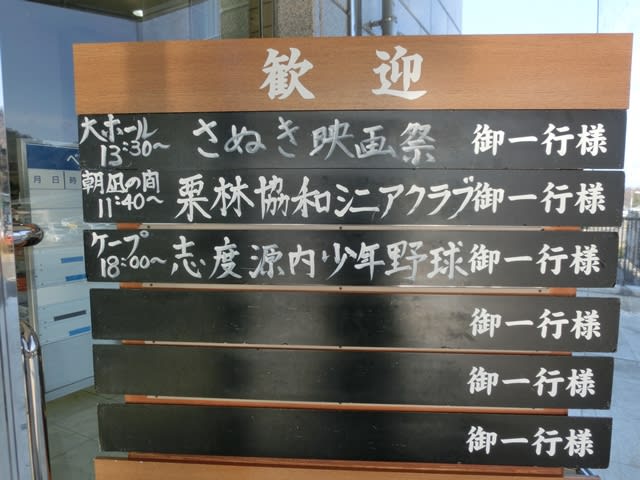 歓迎
大ホール
13:30～
さぬき映画祭 御一行様
朝凪の間
11:40～
栗林協和シニアクラブ御一行様
ケープ
18:00～
志度源内少年野球御一行様
御一行様
御一行様
御一行様
月日時